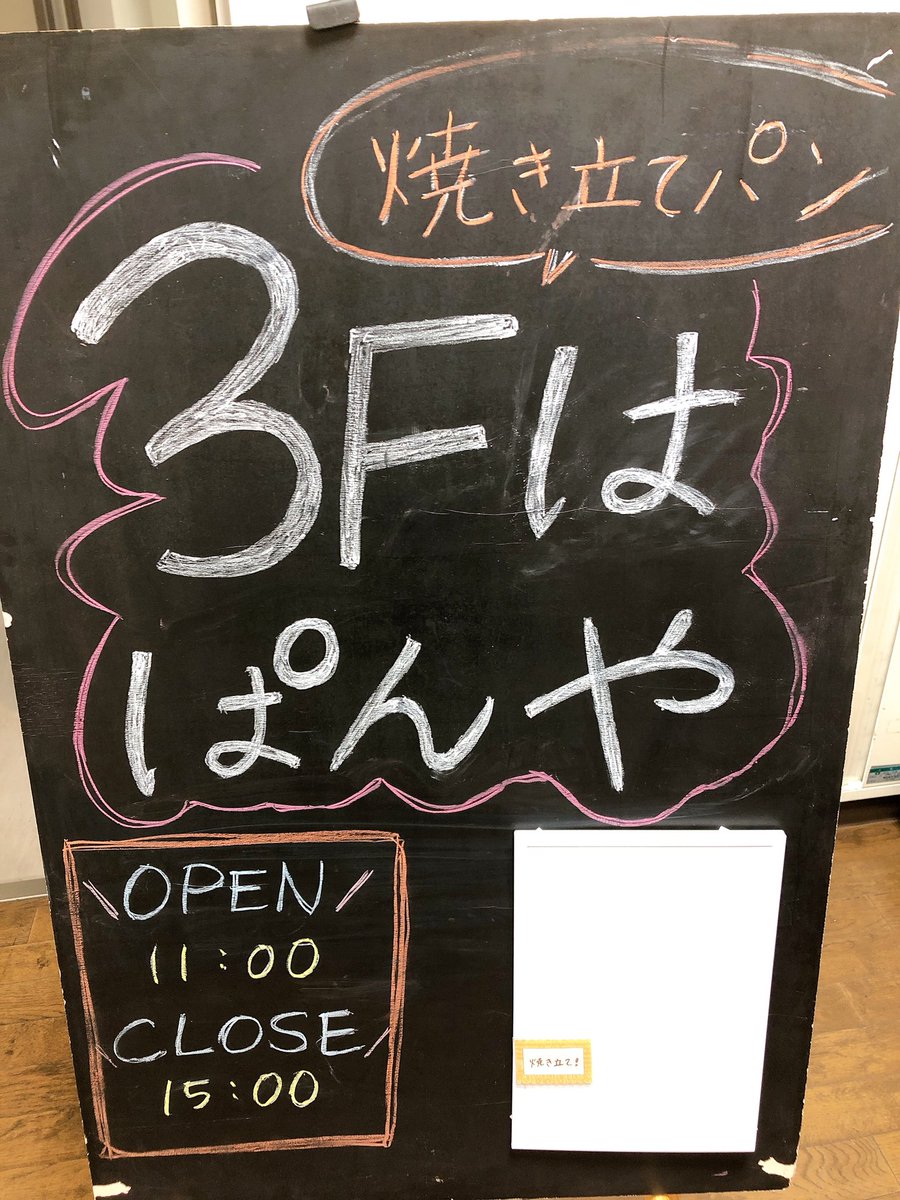 焼き立てパン
3Fは
ぱんや
OPEN
11:00
CLOSE
15:00
焼き立て!